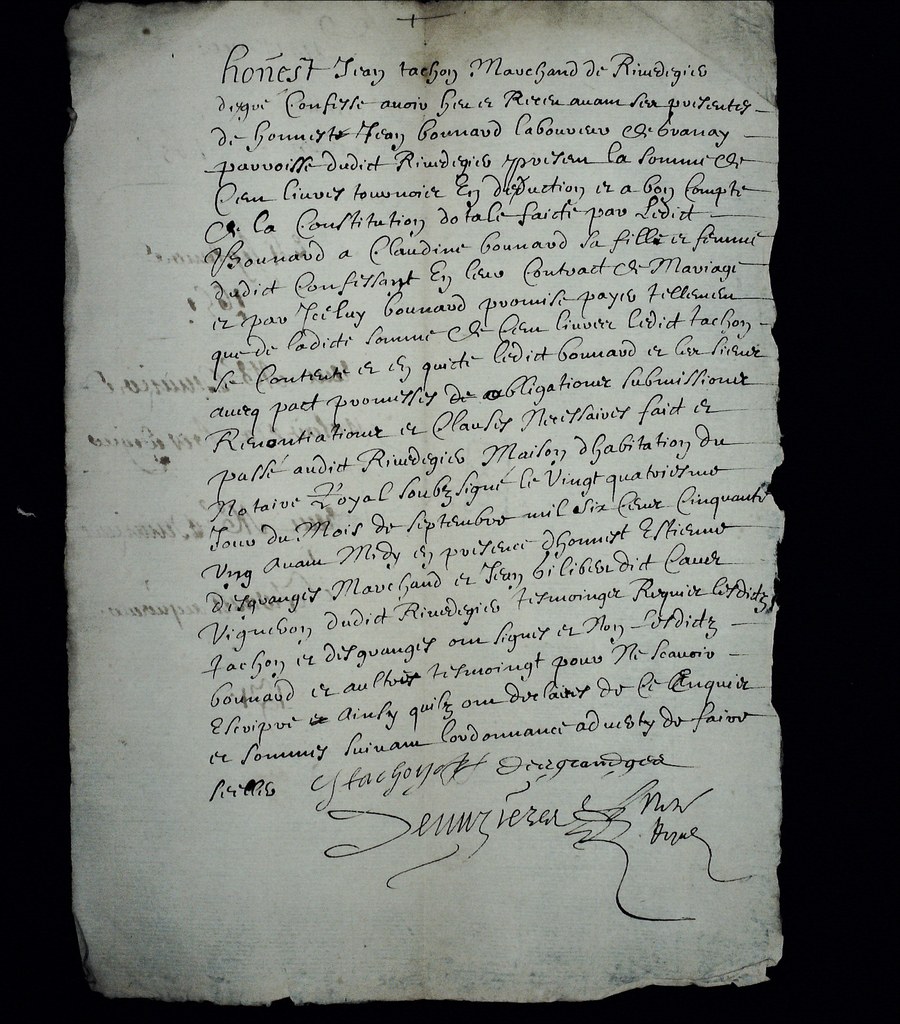 honest Jean tachon Marchand de Riverieres
de gré Confesse avoir heu et Receu avant ses presentes
de honneste Jean bonnard laboureur de
parroisse dudict present la somme de
Cent livres tournoies En deduction et a bon Compte
de la Constitution dotale faicte par Ledict
Bonnard a Claudine bonnard sa fille et femme
dudict Confessant En leur Contract de Mariage
et par Icéluy bonnard promise payer tellement
que de ladicte somme de Cent livres ledict tachon
se Contente et en quicte ledict bonnard et les siens
avecq pact promesses de obligations submissions
Renontiations et Clauses Necessaires faict et
passé audict Maison dhabitation du
Notaire Royal soubzsigné le Vingt quatriesme
Jour du Mois de septembre mil six Cens Cinquante
Ung avant Midy en presence dhonnest Estienne
desgranges Marchand et Jean dict
Vigneron dudict tesmoings Requier lesdictz
tachon et desgranges ont signés et Non Lesdictz
bonnard et aultres tesmoingt pour Ne scavoir
Escripre Ainsy quilz ont declaires de Ce Enquier
et sommés suivant lordonnance adverty de faire
seeller Jtachon desgrandges
Not
Royal